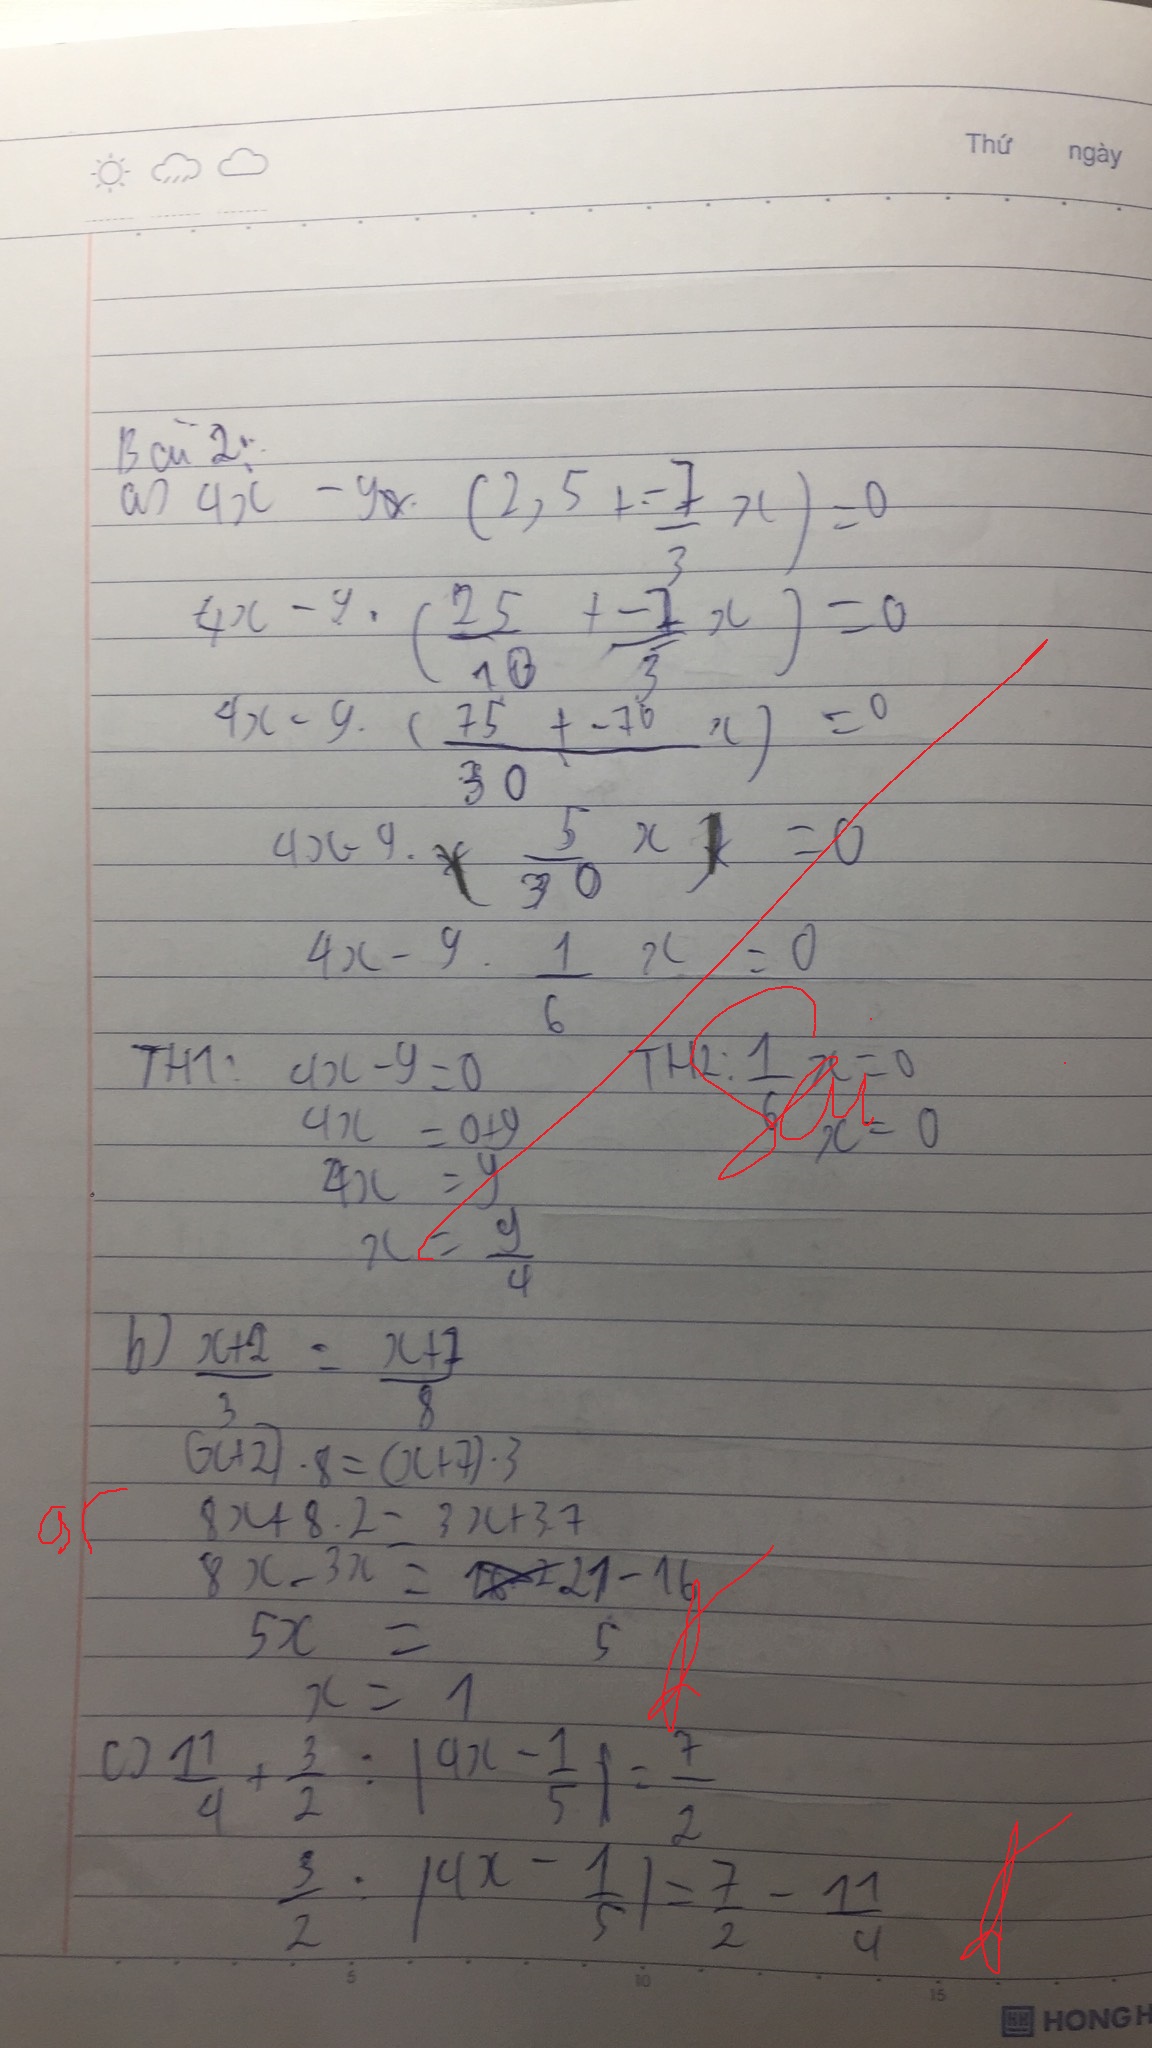 Thứ ngày
Bài 2:
a) 4x - 9. (2,5 + -7/3 x) = 0
4x - 9. (25/10 + -7/3 x) = 0
4x - 9. (75 + -70/30 x) = 0
4x - 9. 5/30 x = 0
4x - 9. 1/6 x = 0
TH1: 4x - 9 = 0 TH2: 1/6 x = 0
4x = 0+9 x = 0
4x = 9
x = 9/4
Sai
b) x+2/3 = x+7/8
(x+2).8 = (x+7).3
8x+8.2 = 3x+3.7
8x-3x = 21-16
5x = 5
x = 1
đ
c) 11/4 + 3/2 : |4x - 1/5| = 7/2
3/2 : |4x - 1/5| = 7/2 - 11/4
đ
5 10 15
HONG H